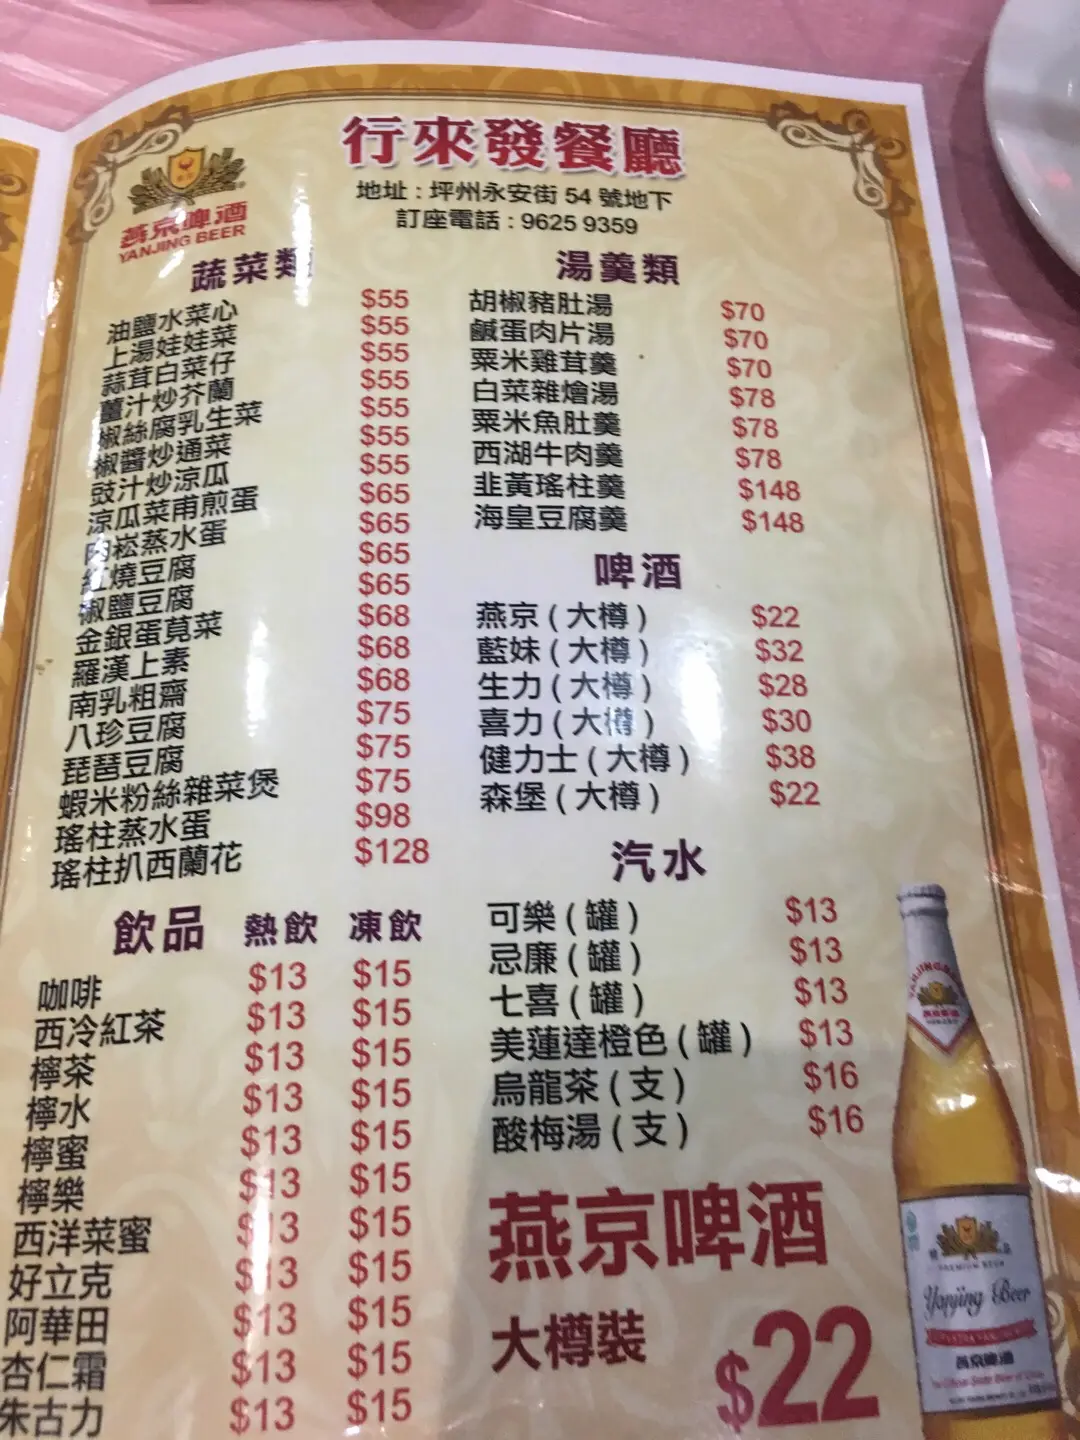 行來發餐廳
地址：坪州永安街 54 號地下
訂座電話：9625 9359
燕京啤酒
YANJING BEER
蔬菜類
油鹽水菜心 $55
上湯娃娃菜 $55
蒜茸白菜仔 $55
薑汁炒芥蘭 $55
椒絲腐乳生菜 $55
椒醬炒通菜 $55
豉汁炒涼瓜 $55
涼瓜菜甫煎蛋 $65
肉崧蒸水蛋 $65
紅燒豆腐 $65
椒鹽豆腐 $65
金銀蛋莧菜 $68
羅漢上素 $68
南乳粗齋 $68
八珍豆腐 $75
琵琶豆腐 $75
蝦米粉絲雜菜煲 $75
瑤柱蒸水蛋 $98
瑤柱扒西蘭花 $128
飲品 熱飲 凍飲
咖啡 $13 $15
西冷紅茶 $13 $15
檸茶 $13 $15
檸水 $13 $15
檸蜜 $13 $15
檸樂 $13 $15
西洋菜蜜 $13 $15
好立克 $13 $15
阿華田 $13 $15
杏仁霜 $13 $15
朱古力 $13 $15
湯羹類
胡椒豬肚湯 $70
鹹蛋肉片湯 $70
粟米雞茸羹 $70
白菜雜燴湯 $78
粟米魚肚羹 $78
西湖牛肉羹 $78
韭黃瑤柱羹 $148
海皇豆腐羹 $148
啤酒
燕京 ( 大樽 ) $22
藍妹 ( 大樽 ) $32
生力 ( 大樽 ) $28
喜力 ( 大樽 ) $30
健力士 ( 大樽 ) $38
森堡 ( 大樽 ) $22
汽水
可樂 ( 罐 ) $13
忌廉 ( 罐 ) $13
七喜 ( 罐 ) $13
美蓮達橙色 ( 罐 ) $13
烏龍茶 ( 支 ) $16
酸梅湯 ( 支 ) $16
燕京啤酒
大樽裝
$22
PREMIUM BEER
Yanjing Beer
燕京啤酒